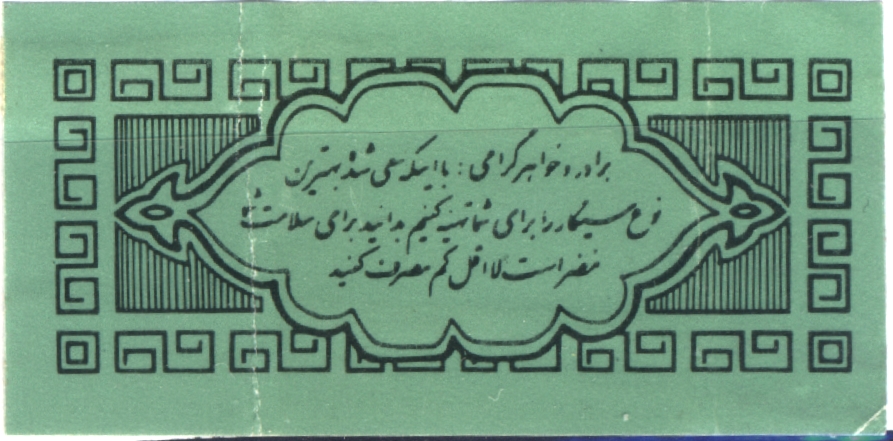 برادر و خواهر گرامی : با اینکه سعی شده بهترین
نوع سیگار را برای شما تهیه کنیم بدانید برای سلامت شما
مضر است لااقل کم مصرف کنید